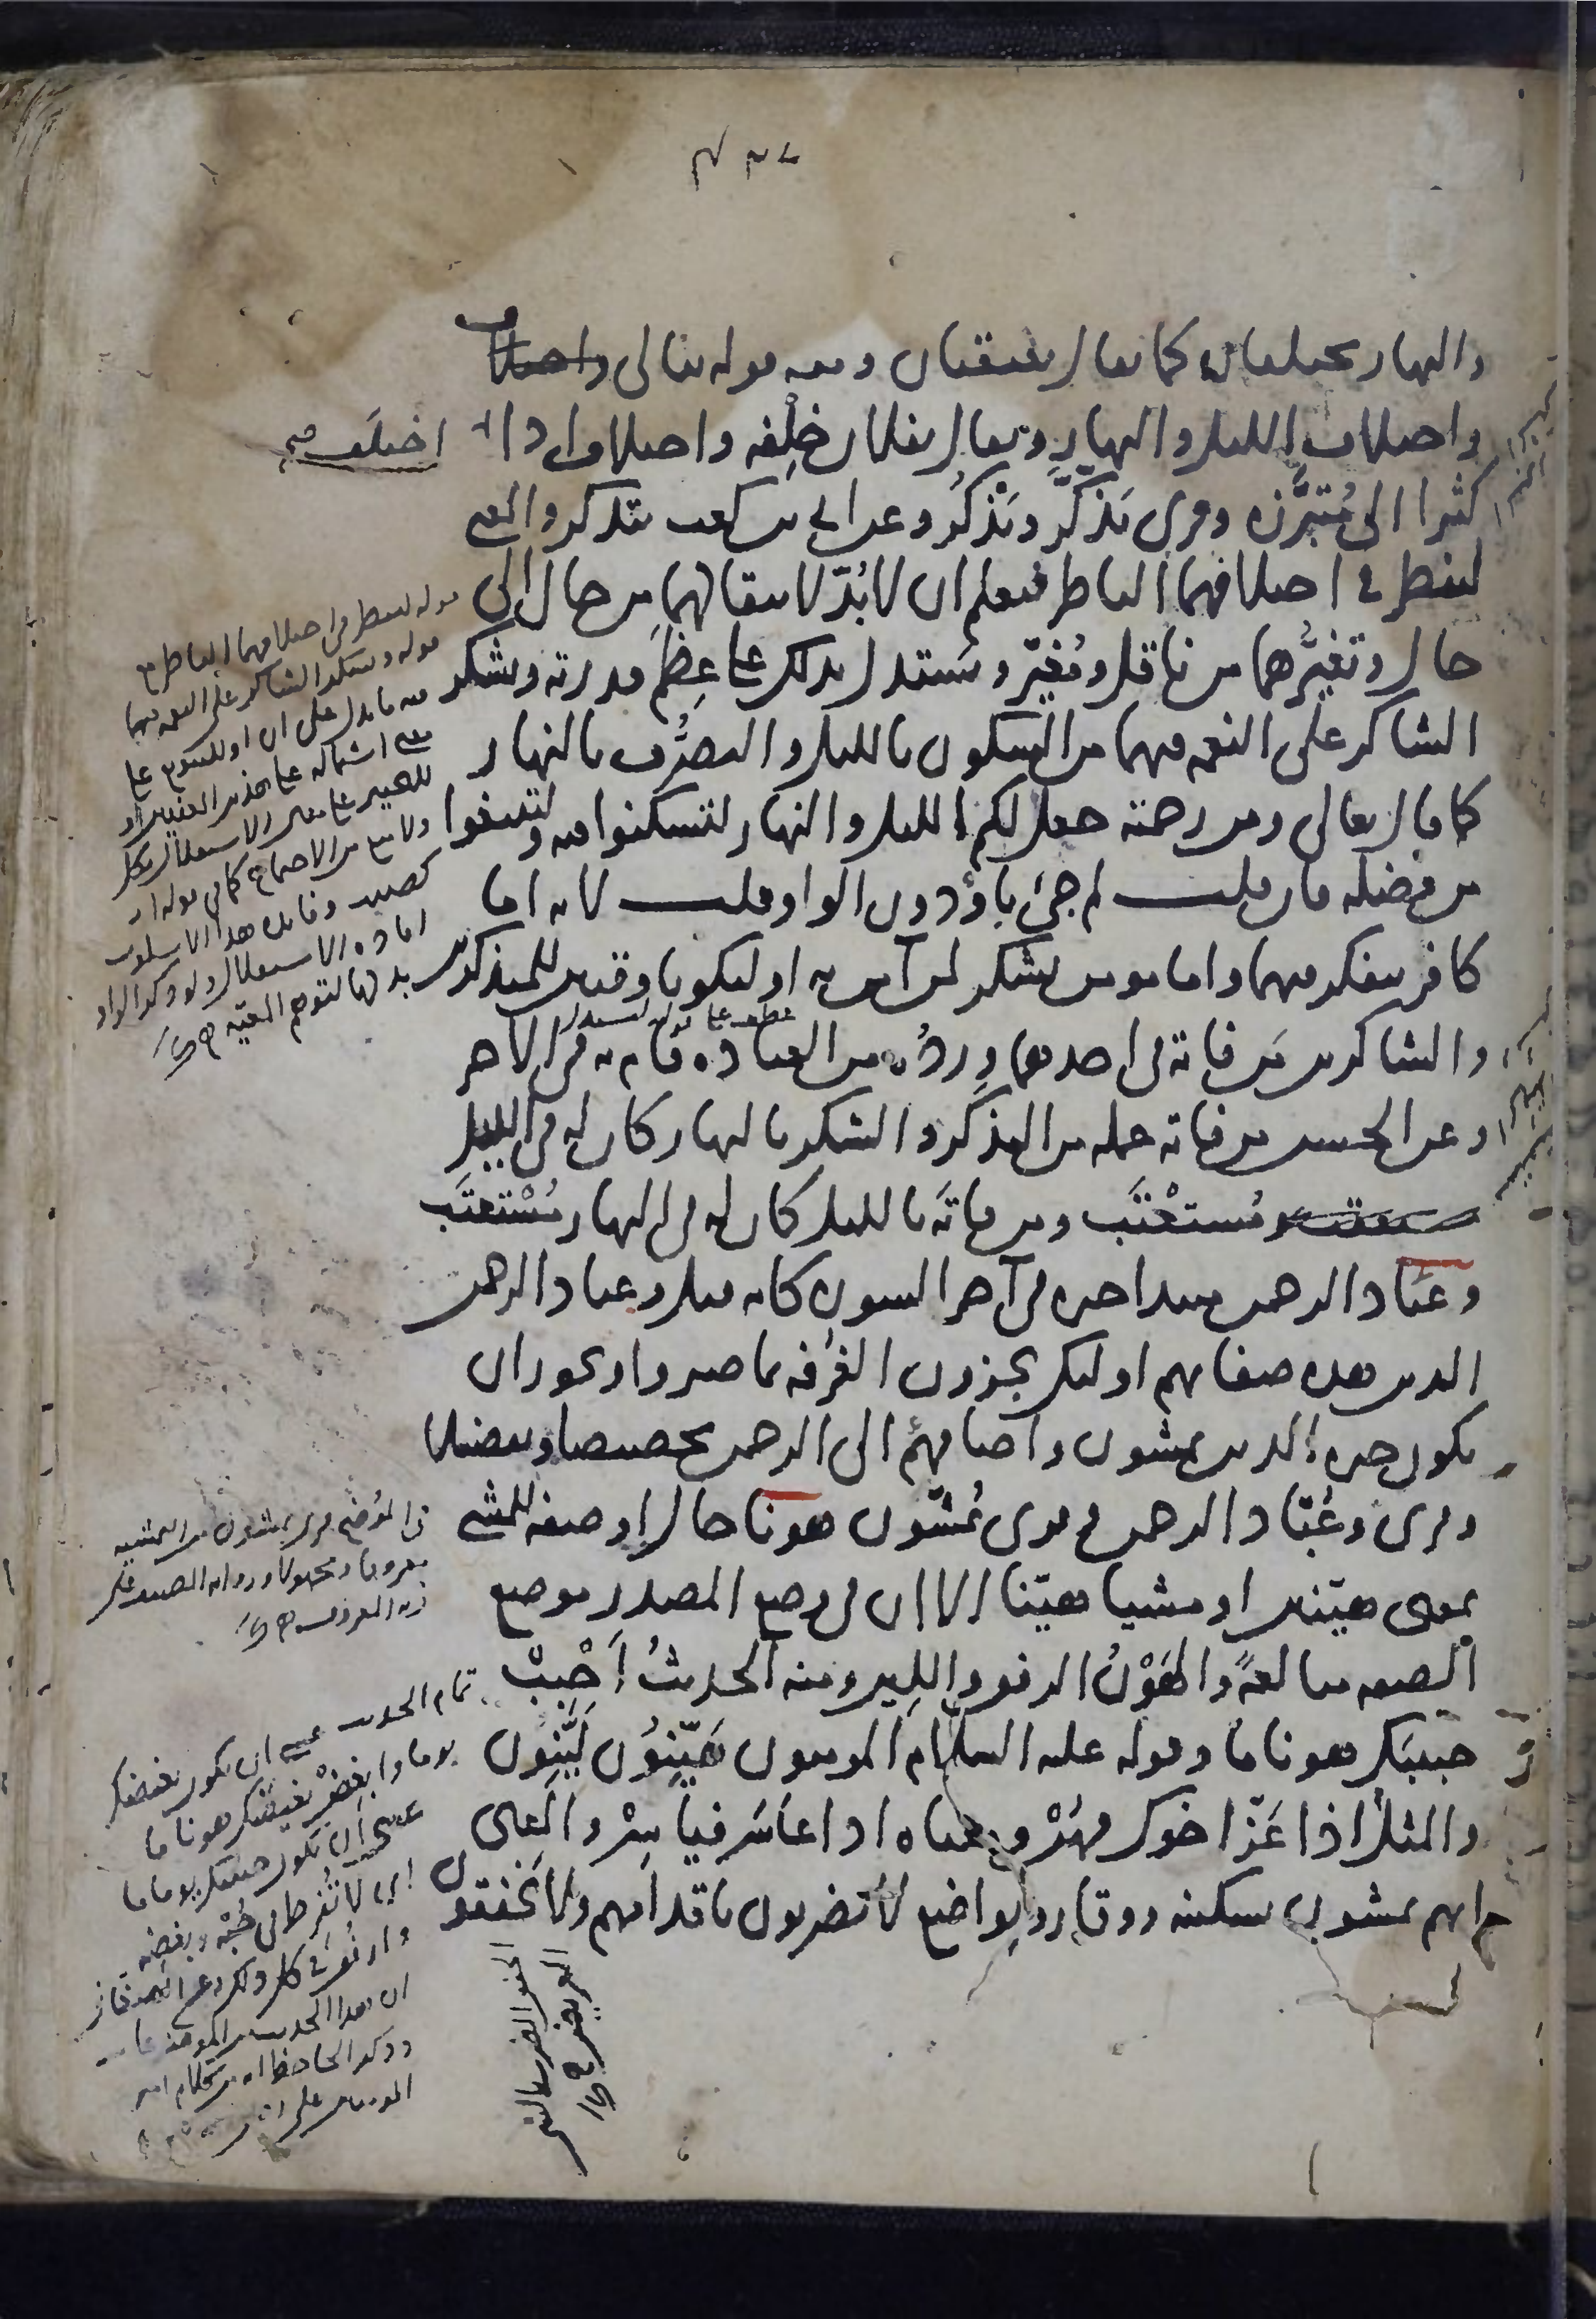 والنهار يختلفان كما يقال يعتقبان ومنه قوله تعالى واختلاف
واختلاف الليل والنهار ويقال بفلان خلفة واختلاف اذا
اختلف صح
كثيرا الى مُتبرَّزه وقرى يَذّكّر ويَذْكُر وعن ابي بن كعب يتذكر والمعنى
لينظر في اختلافهما الناظر فيعلم ان لا بُدّ لانتقالهما من حال الى
حال وتغيُّرهما من ناقل ومُغيّر ويستدل بذلك على عِظَم قدرته ويشكر
الشاكر على النعمة فيهما من السكون بالليل والتصرُّف بالنهار
كما قال تعالى ومن رحمته جعل لكم الليل والنهار لتسكنوا فيه ولتبتغوا
من فضله فان قلت لم جئ باَوْ دون الواو قلت لانه اما
كافر يتفكر فيهما واما مومن يشكر لمن آمن به او ليكونا وقتين للمتذكرين
عطف على قوله ليستدل
والشاكرين مَن فاته في احدهما وِردُه من العبادة قام به في الاخر
وعن الحسن من فاته عمله من التذكّر والشكر بالنهار كان له في الليل
مُستعْتَب ومن فاتَه بالليل كان له في النهار مُسْتَعتَب
وعبَاد الرحمن مبتدا خبره في آخر السورة كانه قيل وعباد الرحمن
الذين هذه صفاتهم اولئك يجزون الغُرفة بما صبروا ويجوز ان
يكون خبره الذين يمشون واضافتهُم الى الرحمن تخصيصا وتفضيلا
وقرى وعُبّاد الرحمن وقرى يُمَشّون هونا حال او صفة للمشي
بمعنى هيّنين او مشيا هيّنا الا ان في وضع المصدر موضع
الصفة مبالغةً والهَوْنُ الرفق واللين ومنه الحديثُ أَحْبِبْ
حبيبَك هونا ما وقوله عليه السلام المومنون هَيّنُون لَيّنُون
والمثلُ اذا عَزّ اخوك فهُنْ ومعناه اذا عاسَر فياسِرْ والمعنى
انهم يمشون بسكينة ووقار وتواضع لا يَضربون باقدامهم ولا يَخفقون
قوله لينظر في اختلافهما الناظر مع
قوله ويشكر الشاكر على النعمة فيهما
فيه ما يدل على ان او للتنويع على
معنى اشتماله على هذين المعنيين او
للتخيير على معنى الاستقلال بكل
ولا منع من الاجتماع كما في قوله او
كصيب وفائدة هذا الاسلوب
افادة الاستقلال ولو ذكر الواو
بدلها لتوهم المعية
في المُوضح قرى يمشون من التمشية
معروفا ومجهولا
تمام الحديث عسى ان يكون بغيضك
يوما وابغِضْ بغيضَك هونا ما
عسى ان يكون حبيبك يوما ما
اي لا تُفرط في حُبّه وبغضه
وارفُق في كل ذلك وعن
ان هذا الحديث
وذكر الحافظ انه من كلام امير
المومنين علي